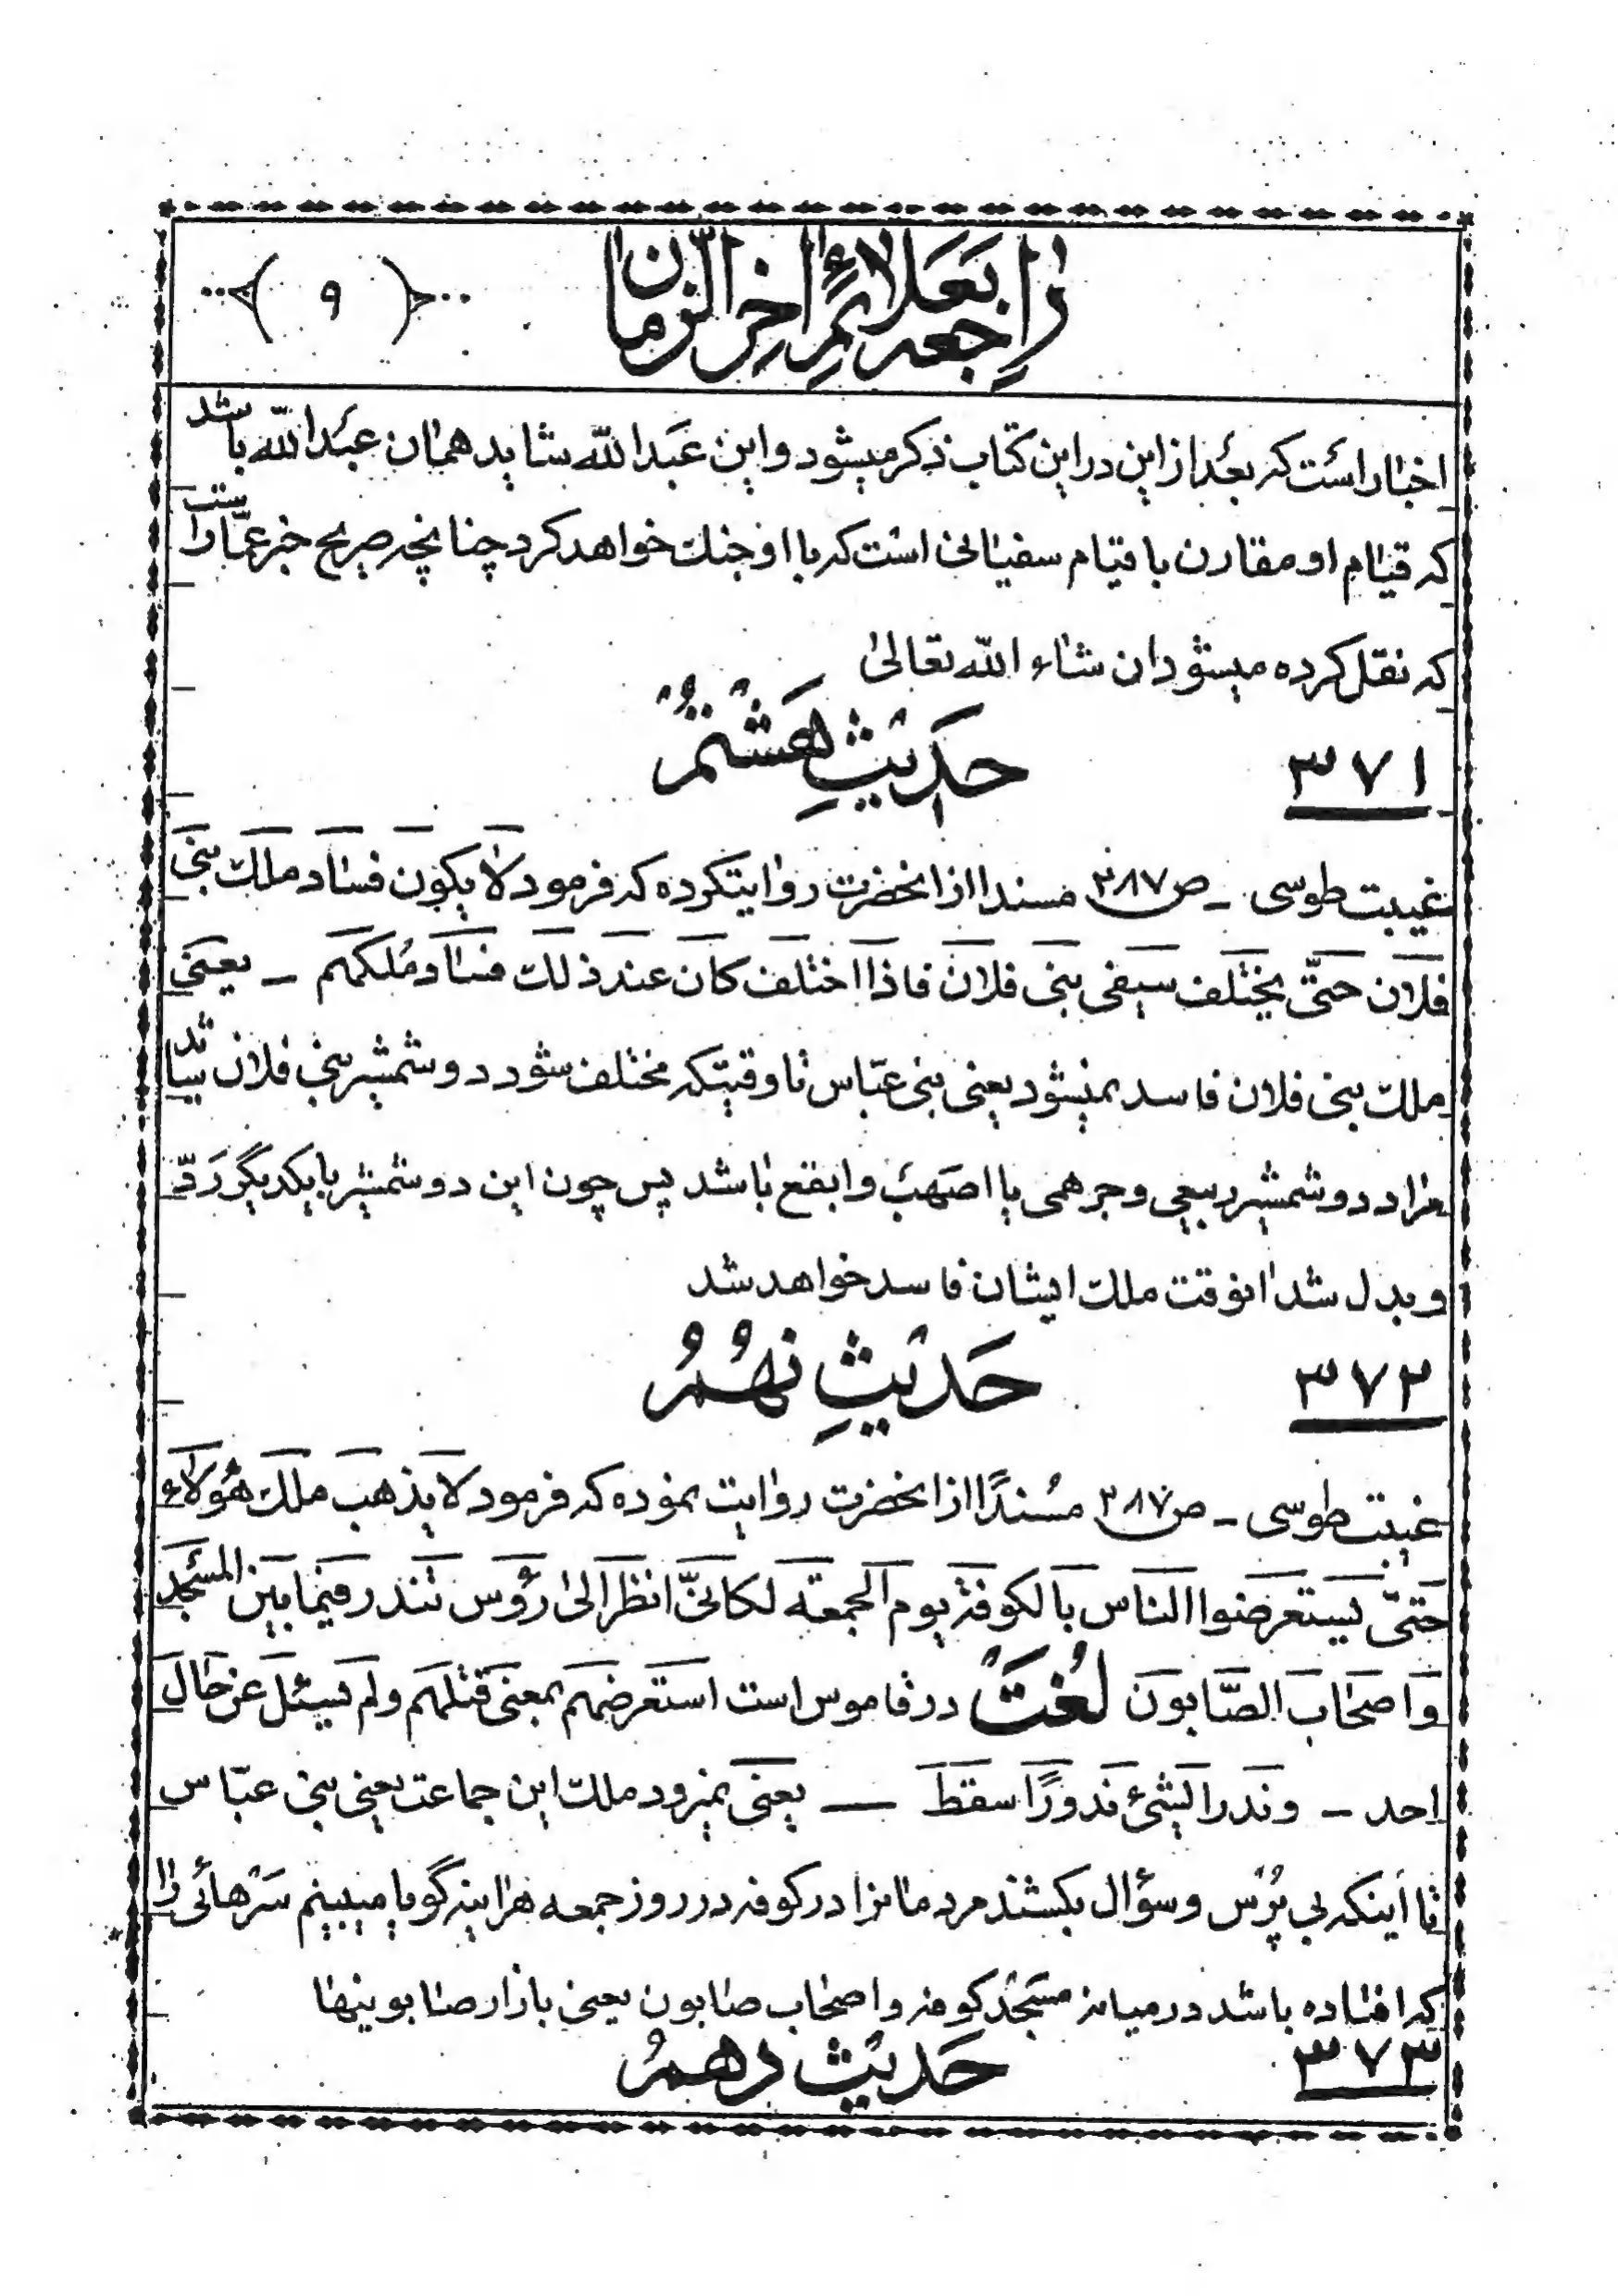 راجعه بعلائم اخر الزمان
﴿ ۹ ﴾
اخبار است که بعد از این در این کتاب ذکر میشود و این عبد الله شاید همان عبد الله باشد
که قیام او مقارن با قیام سفیانی است که با او جنك خواهد کرد چنانچه صریح خبر عمّار است
که نقل کرده میشود ان شاء الله تعالی
۳۷۱ حَدیثِ هَشتُمُ
غیبت طوسی – ص۲۸۷ مسندا از انحضرت روایتکرده که فرمود لا یکون فساد ملك بنی
فلان حتّی یختلف سیفی بنی فلان فاذا اختلف کان عند ذلك فساد مُلکهم – یعنی
ملك بنی فلان فاسد نمیشود یعنی بنی عبّاس تا وقتیکه مختلف شود دو شمشیر بنی فلان شاید
مراد دو شمشیر ربیعی و جرهمی یا اصهب و ابقع باشد پس چون این دو شمشیر با یکدیگر رَدّ
و بدل شد انوقت ملك ایشان فاسد خواهد شد
۳۷۲ حَدیثِ نهُمُ
غیبت طوسی – ص۲۸۷ مُسندًا از انحضرت روایت نموده که فرمود لا یذهب ملك هؤلاء
حتّی یستعرضوا الناس بالکوفة یوم الجمعة لکانّی انظر الی رؤس تندر فیما بین المسجد
و اصحاب الصّابون لُغَتْ در قاموس است استعرضهم بمعنی قتلهم و لم یسئل عن حال
احد – و ندر الشئ ندورًا سقط — یعنی نمیرود ملك این جماعت یعنی بنی عبّاس
تا اینکه بی پُرس و سؤال بکشند مردمانرا در کوفه در روز جمعه هراینه گویا میبینم سَرهائی را
که افتاده باشد در میانه مسجد کوفه و اصحاب صابون یعنی بازار صابونیها
۳۷۳ حَدیث دهمُ